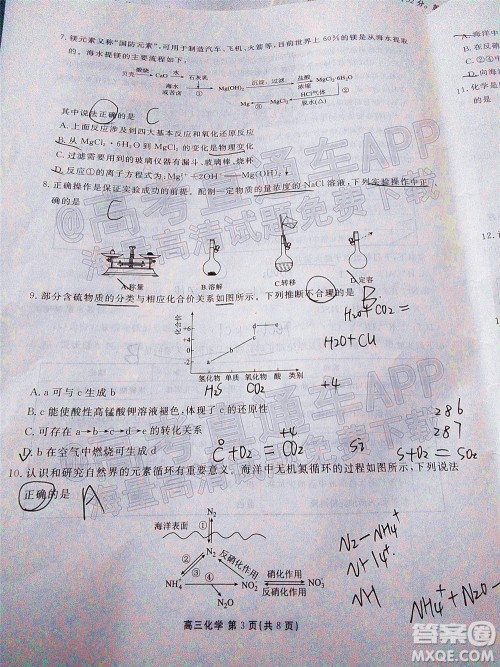 7. 镁元素又称“国防元素”,可用于制造汽车、飞机、火箭等,目前世界上 60%的镁是从海水提取
的。海水提镁的主要流程如下:
贝壳 煅烧 CaO 水 石灰乳
海水或苦卤 Mg(OH)₂ 沉淀,过滤 盐酸 浓缩 MgCl₂·6H₂O
Mg ③ MgCl₂ HCl气体 ② 脱水(△)
其中说法正确的是 C
A. 上面反应涉及到四大基本反应和氧化还原反应
B. 从 MgCl₂·6H₂O 到 MgCl₂ 的变化是物理变化
C. 过滤需要用到的玻璃仪器有玻璃棒、烧杯
D. 反应①的离子方程式为:Mg²⁺+2OH⁻=Mg(OH)₂↓
8. 正确操作是保证实验成功的前提。配制一定物质的量浓度的NaCl溶液,下列实验操作中正
确的是 C
A.称量 B.溶解 C.转移 D.定容
9. 部分含硫物质的分类与相应化合价关系如图所示。下列推断不合理的是 B
化合价
+6
+4
0
-2
a b c d
氢化物 单质 氧化物 酸 类别
H₂O+CO₂ =
H₂O+CU
H₂ CO₂ +4
A. a 可与 c 生成 b
B. c 能使酸性高锰酸钾溶液褪色,体现了 c 的还原性
C. 可存在 b→a→c→d→b 的转化关系
D. b 在空气中燃烧可生成 d
C+O₂=CO₂ S+O₂=SO₂
286
287
10. 认识和研究自然界的元素循环有重要意义。海洋中无机氮循环的过程如图所示,下列说法
正确的是 A
海洋表面 ①
N₂
反硝化作用 反硝化作用
NH₄⁺ 硝化作用 NO₂⁻ 硝化作用 NO₃⁻
N₂O
N₂–NH₄⁺
NH₄⁺
NH
NH₄⁺+N₂O
高三化学 第 3 页(共 8 页)
@高考直通车APP
海量高清试题免费下载
答案圈
MXQE.COM